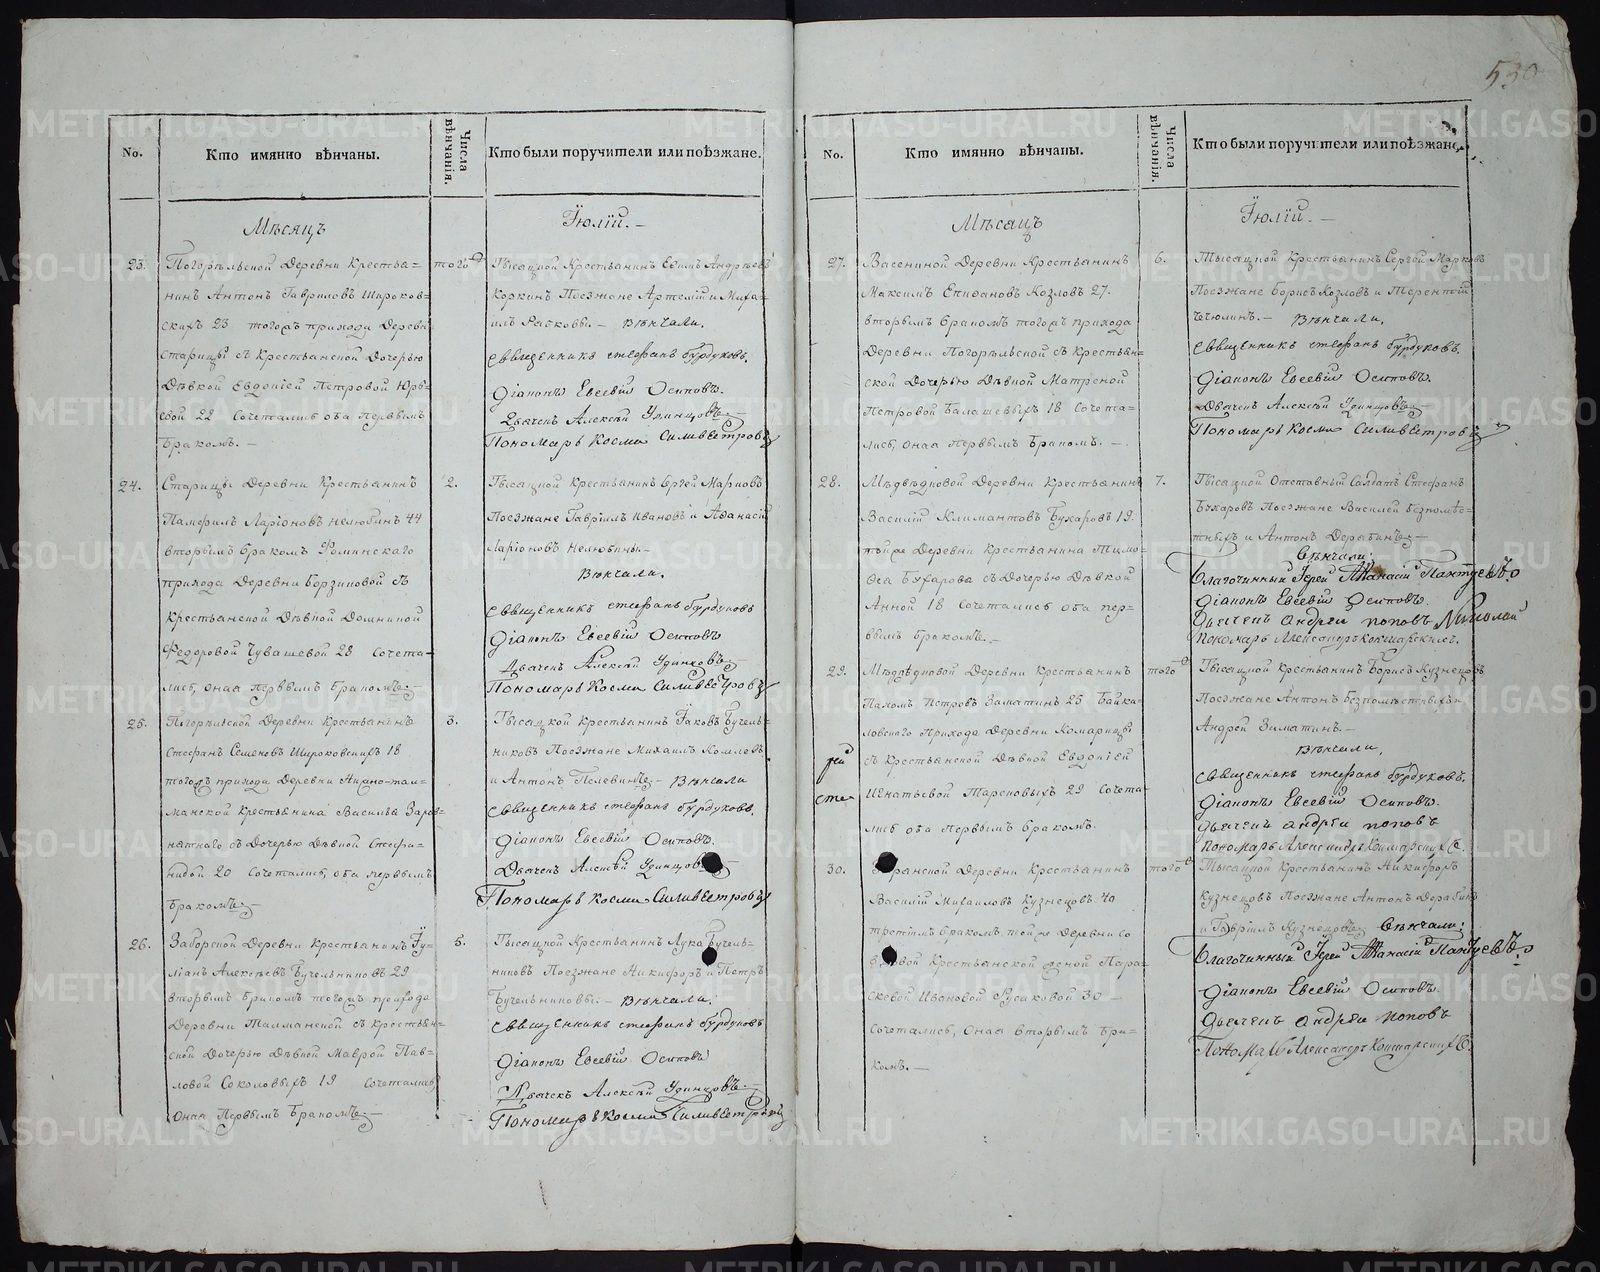 530
No.
Кто имянно вѣнчаны.
Числа вѣнчанія.
Кто были поручители или поѣзжане.
Мѣсяцъ
Іюлій. —
23.
Погорѣльской Деревни Крестья=
нинъ Антонъ Гавриловъ Широков=
скихъ 23 тогожъ прихода Деревни
Старицы съ Крестьянской Дочерью
Дѣвкой Евдокіей Петровой
22 Сочетались оба первымъ
бракомъ. —
того
Тысяцкой Крестьянинъ Андрѣевъ
Коркинъ Поезжане Артемій и Миха=
илъ — Вѣнчали.
священникъ стефанъ бурдуковъ.
Діаконъ Евсевій Осиповъ.
Дьячекъ Алексѣй Удинцовъ. —
Пономарь Косма Силивестровъ
24.
Старицы Деревни Крестьянинъ
Памфилъ Ларіоновъ Нелюбинъ 44
вторымъ бракомъ Фоминскаго
прихода Деревни Борзиковой съ
Крестьянской Дѣвкой Домникой
Федоровой Чувашевой 28 Сочета=
лись, оная первымъ бракомъ. —
2.
Тысяцкой Крестьянинъ Сергей Марковъ
Поезжане Гавріилъ Ивановъ и Афанасій
Ларіоновъ Нелюбины. —
Вѣнчали.
священникъ стефанъ бурдуковъ
Діаконъ Евсевій Осиповъ
Дьячекъ Алексѣй Удинцовъ. —
Пономарь Косма Силивестровъ
25.
Погорѣльской Деревни Крестьянинъ
Стефанъ Семеновъ Широковскихъ 18
тогожъ прихода Деревни
манской Крестьянина Василья
съ Дочерью Дѣвкой Стефа=
нидой 20 Сочетались, оба первымъ
бракомъ. —
3.
Тысяцкой Крестьянинъ Іаковъ Бучель=
никовъ Поезжане Михаилъ Комлевъ
и Антонъ Пелевинъ. — Вѣнчали
священникъ стефанъ бурдуковъ.
Діаконъ Евсевій Осиповъ.
Дьячекъ Алексѣй Удинцовъ —
Пономарь Косма Силивестровъ
26.
Заборской Деревни Крестьянинъ Іу=
ліанъ Алексѣевъ Бучельниковъ 29
вторымъ бракомъ тогожъ прихода
Деревни Талманской съ Крестьян=
ской Дочерью Дѣвкой Маврой Пав=
ловой Соколовыхъ 19 Сочетались
оная Первымъ бракомъ. —
5.
Тысяцкой Крестьянинъ Лука Бучель=
никовъ Поезжане Никифоръ и Петръ
Бучельниковы. — Вѣнчали.
священникъ стефанъ бурдуковъ
Діаконъ Евсевій Осиповъ
Дьячекъ Алексѣй Удинцовъ. —
Пономарь Косма Силивестровъ
No.
Кто имянно вѣнчаны.
Числа вѣнчанія.
Кто были поручители или поѣзжане.
Мѣсяцъ
Іюлій. —
27.
Васениной Деревни Крестьянинъ
Максимъ Епифановъ Козловъ 27.
вторымъ бракомъ тогожъ прихода
Деревни Погорѣльской съ Крестьян=
ской Дочерью Дѣвкой Матреной
Петровой Балашевыхъ 18 Сочета=
лись, оная первымъ бракомъ. —
6.
Тысяцкой Крестьянинъ Сергей Марковъ
Поезжане Борисъ Козловъ и Терентій
Чечюлинъ. — Вѣнчали.
священникъ стефанъ бурдуковъ.
Діаконъ Евсевій Осиповъ.
Дьячекъ Алексѣй Удинцовъ —
Пономарь Косма Силивестровъ
28.
Медвѣдковой Деревни Крестьянинъ
Василій Климантовъ Бухаровъ 19.
той же Деревни Крестьянина Тимо=
фея Бухарова съ Дочерью Дѣвкой
Анной 18 Сочетались оба пер=
вымъ бракомъ. —
7.
Тысяцкой Отставный Салдатъ Стефанъ
Бухаровъ Поезжане Василей Безпомѣс=
тныхъ и Антонъ Дерябинъ. —
Вѣнчали:
Благочинный Іерей Афанасій Пантуевъ.
Діаконъ Евсевій Осиповъ.
Дьячекъ Андрей Поповъ
29.
Медвѣдковой Деревни Крестьянинъ
Пахомъ Петровъ Заматинъ 25 Байка=
ловскаго Прихода Деревни Комарицы
съ Крестьянской Дѣвкой Евдокіей
Игнатьевой Тарсковыхъ 29 Сочета=
лись оба первымъ бракомъ.
того
Тысяцкой Крестьянинъ Борисъ Кузнецовъ
Поезжане Антонъ Безпомѣстныхъ
Андрей Заматинъ. —
Вѣнчали,
священникъ стефанъ бурдуковъ.
Діаконъ Евсевій Осиповъ.
Дьячекъ Андрей Поповъ
30.
Деревни Крестьянинъ
Василій Михайловъ Кузнецовъ 40
третіимъ бракомъ той же Деревни со
вдовой Крестьянской женой Пара=
скевой Ивановой Русаковой 30 —
Сочетались, Оная вторымъ бра=
комъ. —
того
Тысяцкой Крестьянинъ Никифоръ
Кузнецовъ Поезжане Антонъ Дерябинъ
и Гавріилъ Кузнецовъ Вѣнчали:
Благочинный Іерей Афанасій Пантуевъ.
Діаконъ Евсевій Осиповъ.
Дьячекъ Андрей Поповъ
METRIKI.GASO-URAL.RU